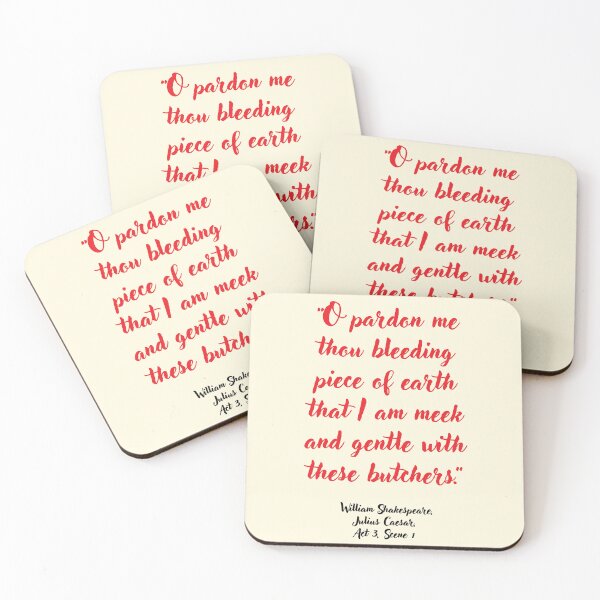 "O pardon me
thou bleeding
piece of earth
that I am meek
with
"O pardon me
thou bleeding
piece of earth
that I am meek
and gentle with
these butchers."
"O pardon me
thou bleeding
piece of earth
that I am meek
and gentle
these
William
Julius
Act 3,
"O pardon me
thou bleeding
piece of earth
that I am meek
and gentle with
these butchers."
William Shakespeare,
Julius Caesar,
Act 3, Scene 1